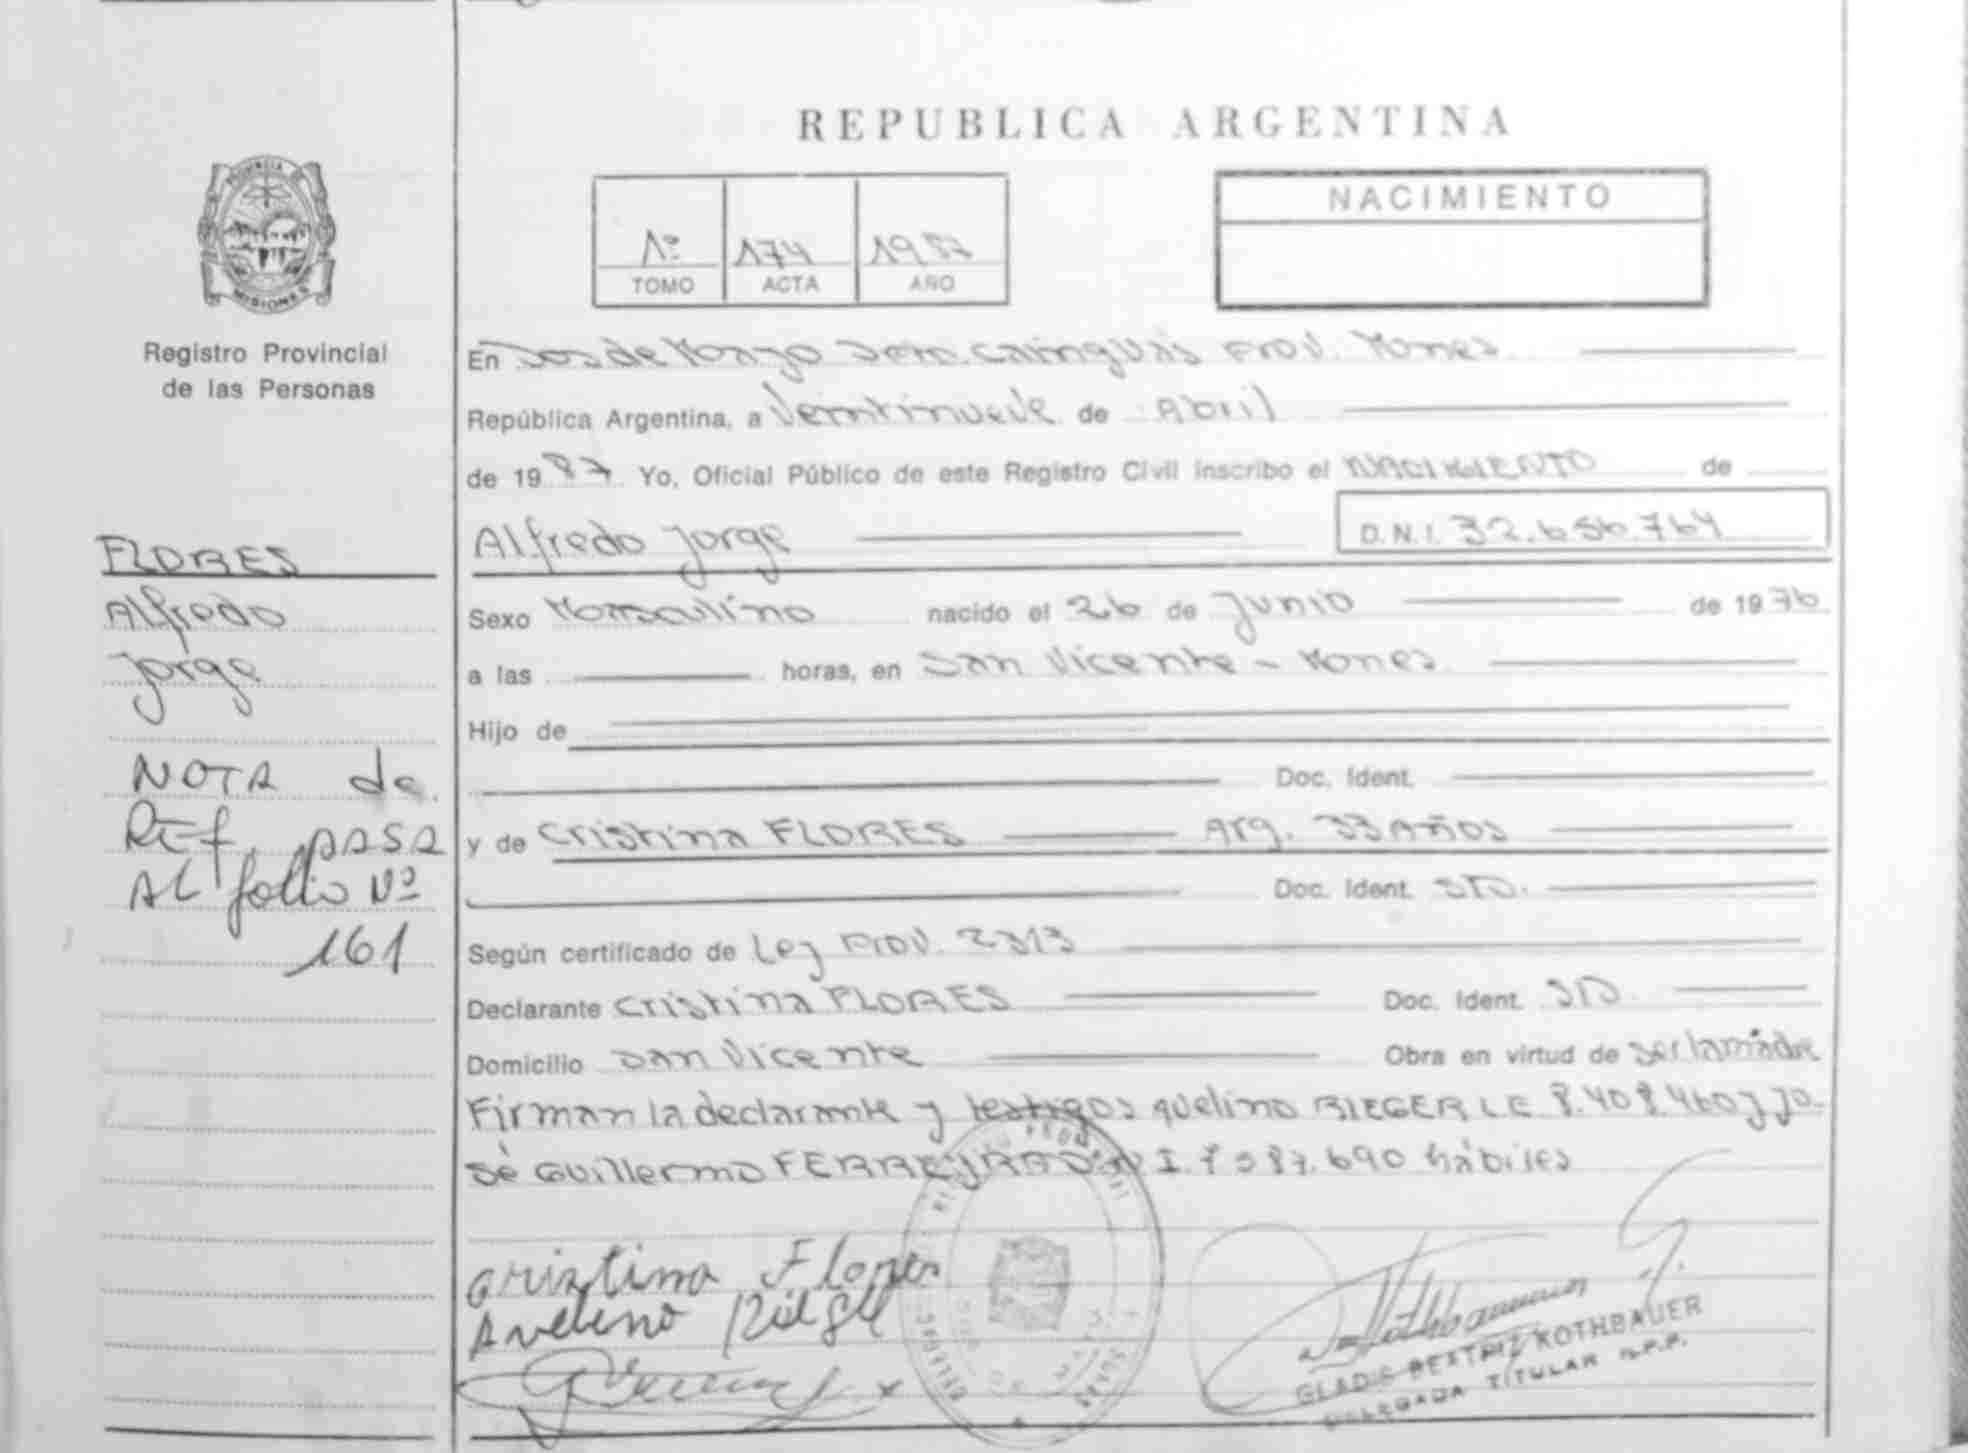 REPUBLICA ARGENTINA
PROVINCIA
MISIONES
Registro Provincial
de las Personas
1º 174 1987
TOMO ACTA AÑO
NACIMIENTO
En Dos de Mayo Dpto. Cainguás Prov. Mones
República Argentina, a Veintinueve de Abril
de 1987 Yo, Oficial Público de este Registro Civil inscribo el NACIMIENTO de
Alfredo Jorge D.N.I. 32.656.764
Sexo Masculino nacido el 26 de Junio de 1976
a las horas, en San Vicente - Mones
Hijo de
Doc. Ident.
y de Cristina FLORES Arg. 33 Años
Doc. Ident. S/D.
Según certificado de Ley Prov. 2313
Declarante Cristina FLORES Doc. Ident. S/D.
Domicilio San Vicente Obra en virtud de ser la madre
Firman la declarante y testigos RIEGER LE 8.408.460 y Jo-
sé Guillermo FERREYRA hábiles
FLORES
Alfredo
Jorge
NOTA de
REf. pASA
AL folio Nº
161
Flores
GLADIS BEATRIZ KOTHBAUER
DELEGADA TITULAR R.P.P.